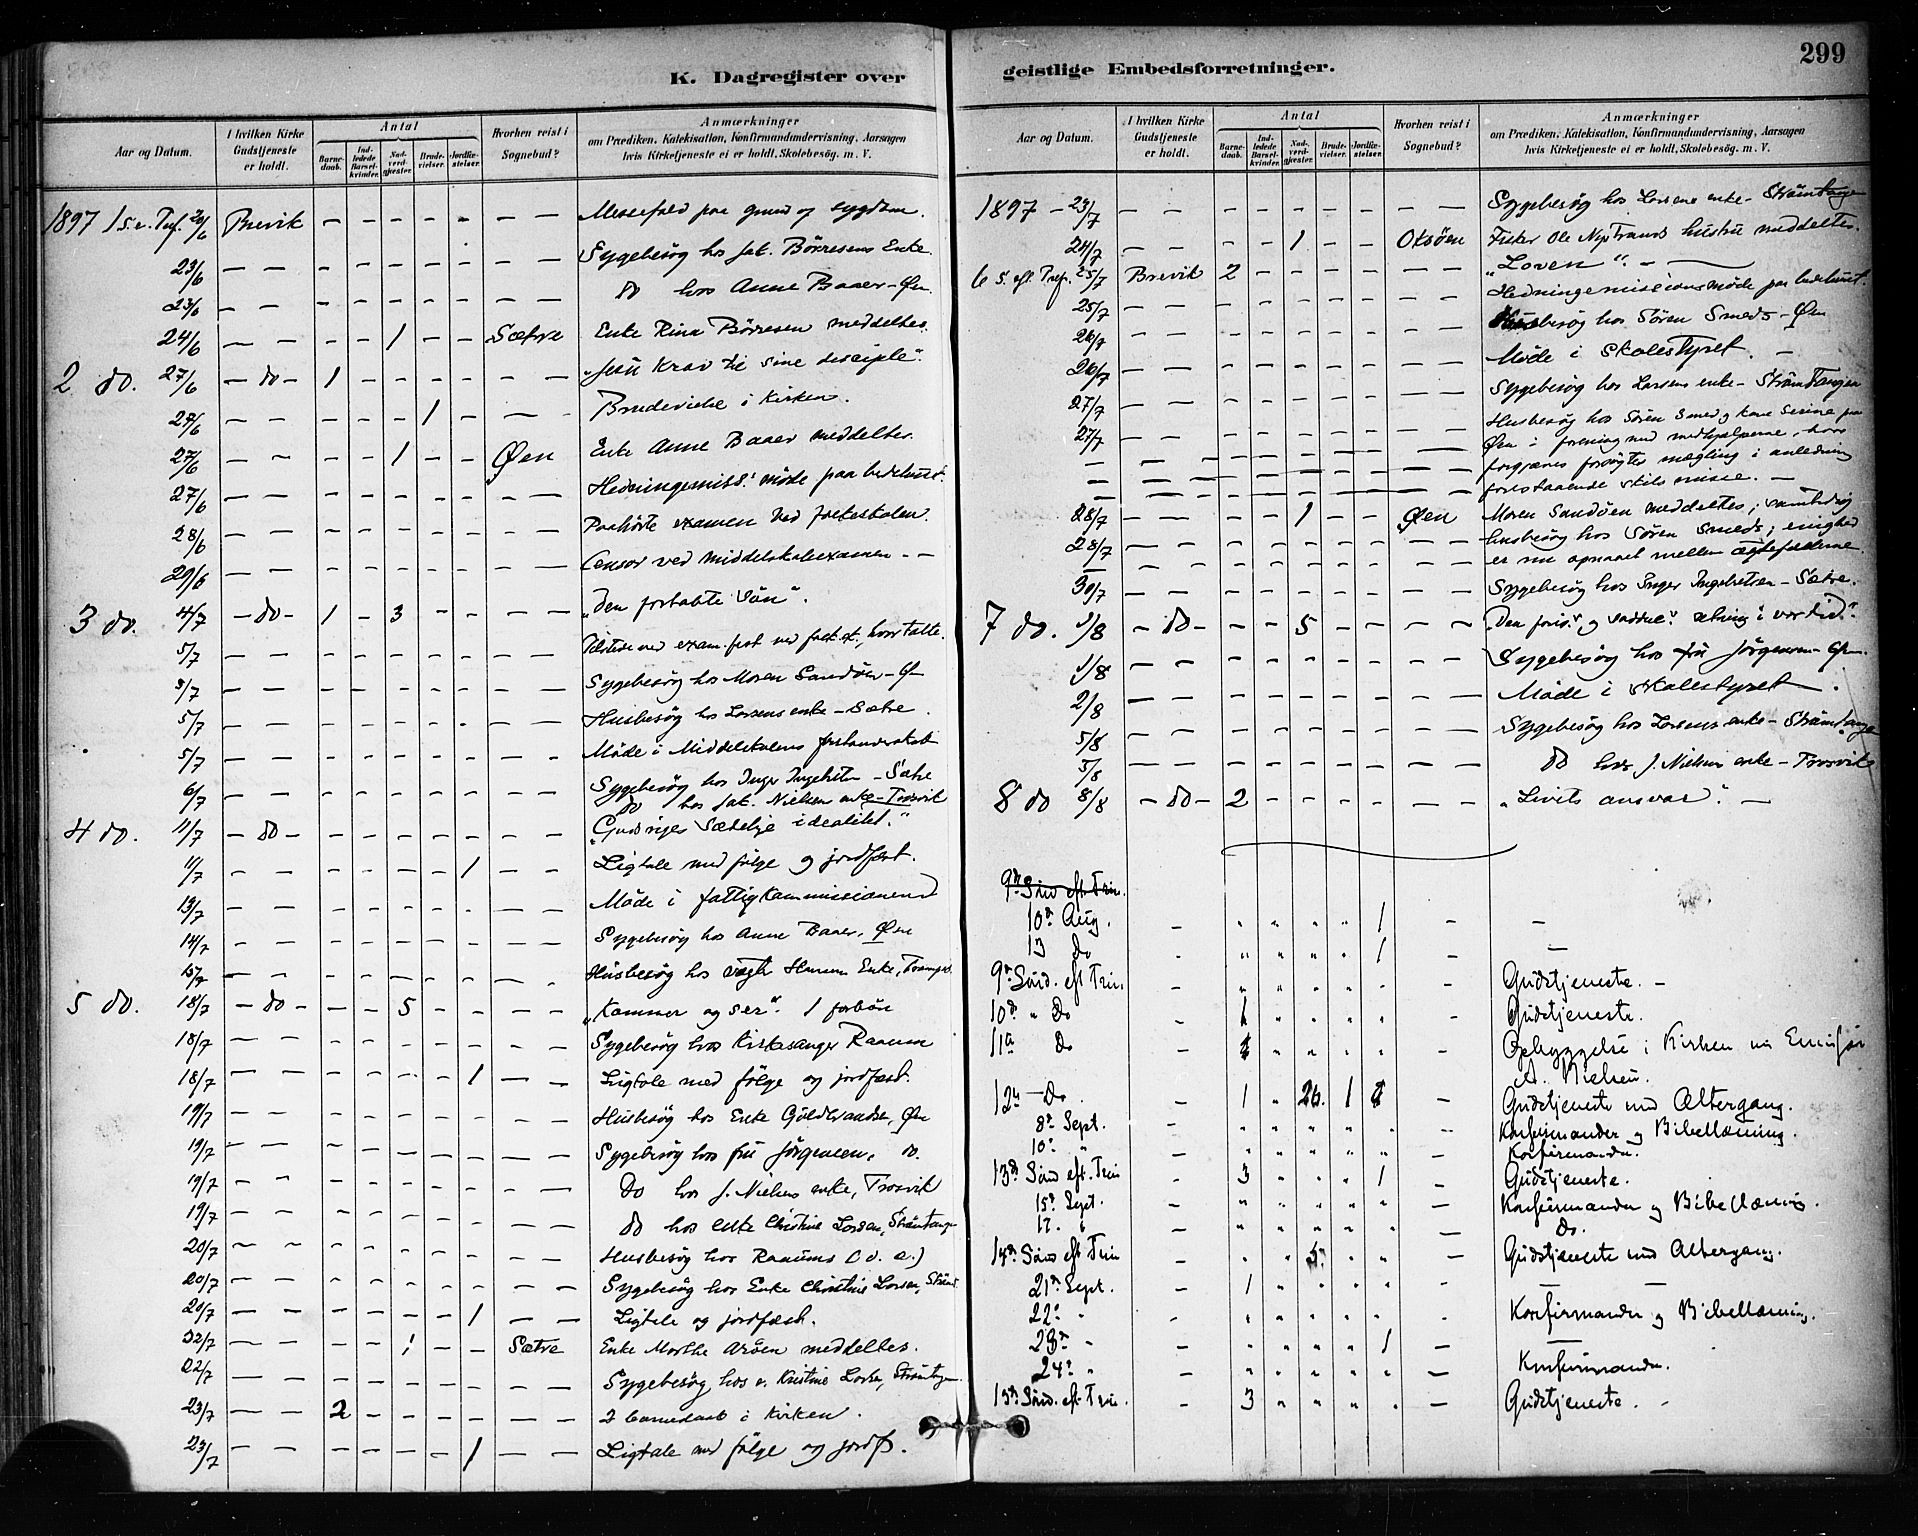 299
K. Dagregister over
geistlige Embedsforretninger.
Aar og Datum.
I hvilken Kirke Gudstjeneste er holdt.
Antal
Barnedaab.
Indledede Barselkvinder.
Nadverdgjester.
Brudevielser.
Jordfæstelser.
Hvorhen reist i Sognebud?
Anmærkninger
om Prædiken, Katekisation, Konfirmandundervisning, Aarsagen
hvis Kirketjeneste ei er holdt, Skolebesög. m. V.
1897 1 S. e. Tref. 20/6 Brevik – – – – – – – Messefald paa grund af sygdom.
23/6 – – – – – – – – – Sygebesög hos Jak. Börresens Enke.
23/6 – – – – – – – – – Do hos Anne Baaer – Øen.
24/6 – – – – 1 – – Sætre Enke Rina Börresen meddeltes.
2 do. 27/6 – do – 1 – – – – – – "Jesu Krav til sine disciple".
27/6 – – – – – 1 – – Brudevielse i Kirken.
27/6 – – – – 1 – – Øen Enke Anne Baaer meddeltes.
27/6 – – – – – – – – – Hedningemiss. möde paa bedehuset.
28/6 – – – – – – – – – Paahörte examen ved folkeskolen.
29/6 – – – – – – – – – Censor ved middelskoleexamen. –
3 do. 4/7 – do – 1 – 3 – – – – "Den fortabte Sön".
5/7 – – – – – – – – – Tilstede ved exam. fest ved folkesk., hvor talte.
5/7 – – – – – – – – – Sygebesög hos Maren Sandöen – Øen
5/7 – – – – – – – – – Husbesög hos Larsens enke – Sætre.
5/7 – – – – – – – – – Möde i Middelskolens forstanderskab
6/7 – – – – – – – – – Sygebesög hos Inger Ingebretsen – Sætre
Do hos Jak. Nielsens enke – Trosvik
4 do. 11/7 – do – – – – – – – – "Gudsriges Sædelige idealitet."
11/7 – – – – – – 1 – – Ligtale med fölge og jordfæst.
13/7 – – – – – – – – – Möde i fattigkommissionen
14/7 – – – – – – – – – Sygebesög hos Anne Baaer, Øen
15/7 – – – – – – – – Husbesög hos vægter Hansens Enke,
5 do. 18/7 – do – – – 5 – – – – "Kommer og ser". 1 forbön
18/7 – – – – – – – – – Sygebesög hos Kirkesanger Raaum
18/7 – – – – – – 1 – – Ligtale med fölge og jordfæst.
19/7 – – – – – – – – – Husbesög hos Enke Guldbrandsen, Øen
19/7 – – – – – – – – – Sygebesög hos fru Jörgensen, do.
19/7 – – – – – – – – – Do hos J. Nielsens enke, Trosvik
19/7 – – – – – – – – – do hos enke Christine Larsen, Strömtangen
20/7 – – – – – – – – – Husbesög hos Raaums (d. æ.)
20/7 – – – – – – – – – Sygebesög hos Enke Christine Larsen, Strömt.
20/7 – – – – – – 1 – – Ligtale og jordfæst.
22/7 – – – – 1 – – Sætre Enke Marthe Aröen meddeltes.
22/7 – – – – – – – – – Sygebesög hos e. Kristine Larsen, Strömtangen
23/7 – – 2 – – – – – – 2 barnedaab i Kirken.
23/7 – – – – – – 1 – – Ligtale med fölge og jordf.
1897 – 23/7 – – – – – – – – – Sygebesög hos Larsens enke – Strömtangen
24/7 – – – – 1 – – Oksöen Fisker Ole Nystrands hustru meddeltes.
6 S. ef. Tref. 25/7 Brevik 2 – – – – – – "Loven". –
25/7 – – – – – – – – – Hedningemissionsmöde paa bedehuset.
26/7 – – – – – – – – – Husbesög hos Sören Smeds – Øen
26/7 – – – – – – – – – Möde i skolestyret. –
27/7 – – – – – – – – – Sygebesög hos Larsens enke – Strömtangen
27/7 – – – – – – – – – Husbesög hos Sören Smed og kone Serine paa
Øen i forening med medhjælperne, hvor
forgjæves forsögtes mægling i anledning
forestaaende skilsmisse. –
28/7 – – – – 1 – – Øen Maren Sandöen meddeltes; samtidig
28/7 – – – – – – – – – husbesög hos Sören Smeds; enighed
er nu opnaaet mellem ægtefolkene.
30/7 – – – – – – – – – Sygebesög hos Inger Ingebretsen – Sætre.
7 do. 1/8 – do – – – 5 – – – – "Den faris." og saddus." retning i vor tid".
1/8 – – – – – – – – – Sygebesög hos fru Jörgensen – Øen.
2/8 – – – – – – – – – Möde i skolestyret.
5/8 – – – – – – – – – Sygebesög hos Larsens enke – Strömtangen
5/8 – – – – – – – – – do hos J. Nielsens enke – Trosvik
8 do 8/8 – do – 2 – – – – – – "Livets ansvar". –
9de Sönd eft. Trin.
10de Aug. – " " " " 1 – –
13 Do – " " " " 1 –
9de Sönd. eft Trin – " " " " " – Gudstjeneste. –
10de " Do – 1 " " " " – Gudstjeneste.
11te Do – " " " " – Opbyggelse i Kirken
A. Nielsen.
12te – Do. – 1 " 26. 1 – Gudstjeneste med Altergang.
8de Sept. – " " " " " – Konfirmander og Bibellæsning.
10de " " " " " " Konfirmander.
13de Sönd eft. Trin – 3 " " " 1 – Gudstjeneste.
15de Sept. – " " " " " – Konfirmander og Bibellæsning.
17. " – " " " " " – Do.
14de Sönd eft Trin – " " 5. " " – Gudstjeneste med Altergang.
21de Sept. – 1 " " " " – – –
22de " – " " " " " – Konfirmander og Bibellæsning.
23de " – " " " " 1 – –
24de " – " " " " " – Konfirmander.
15de Sönd. eft Trin. – 3 " " " " – Gudstjeneste. –